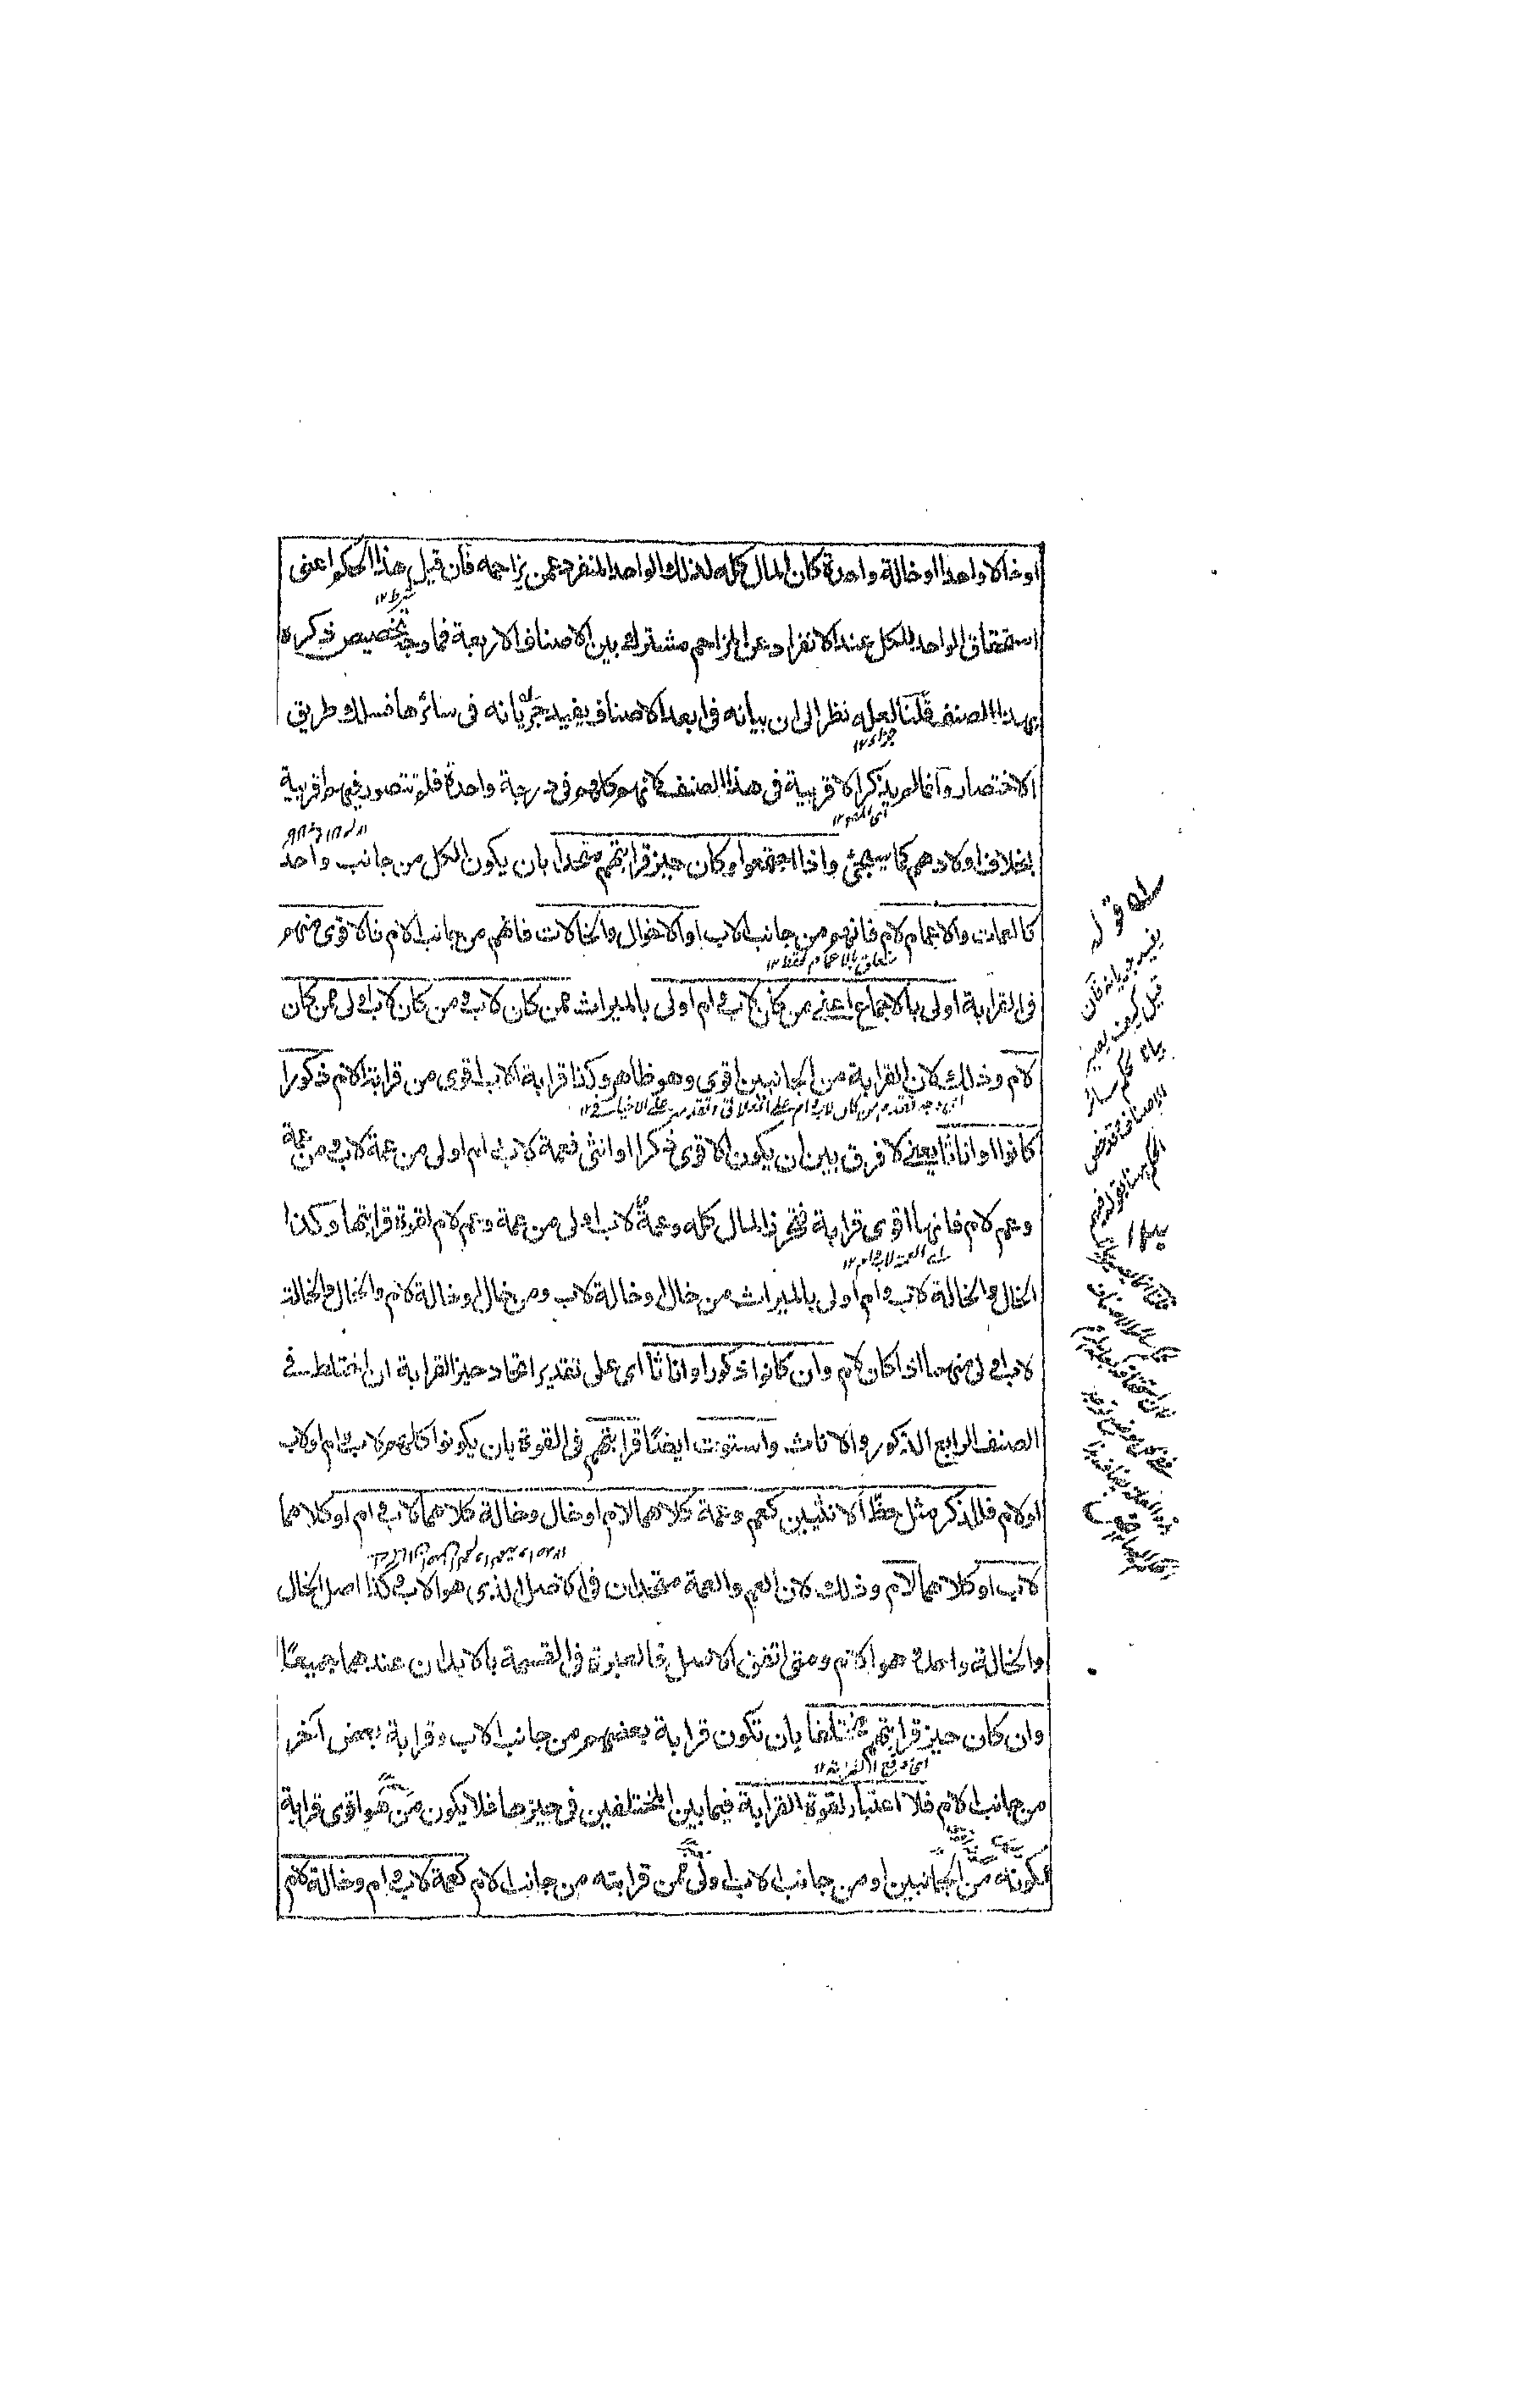 اوخالا واحدا اوخالة واحدة كان المال كله لذلك الواحد المنفرد عمن يزاحمه فأن قيل هذا الحكم اعنى
شرط ١٢
استحقاق الواحد للكل عند الانفراد عن المزاحم مشترك بين الاصناف الاربعة فما وجه تخصيص ذكره
بهذا الصنف قلنا لعله نظر الى ان بيانه فى ابعد الاصناف يفيد جريانه فى سائرها فسلك طريق
جزاء ١٢
الاختصار وانما لم يذكر الاقربية فى هذا الصنف لانهم كلهم فى درجة واحدة فلا تتصور فيهم اقربية
بخلاف اولادهم كما سيجئ واذا اجتمعوا وكان حيز قرابتهم متحدا بان يكون الكل من جانب واحد
كالعمات والاعمام لام فانهم من جانب الاب او الاخوال والخالات فانهم من جانب الام فالاقوى منهم
متعلق بالاعمام فقط ١٢
فى القرابة اولى بالاجماع اعنى من كان لاب وام اولى بالميراث ممن كان لاب ومن كان لاب اولى ممن كان
لام وذلك لان القرابة من الجانبين اقوى وهو ظاهر وكذا قرابة الاب اقوى من قرابة الام ذكورا
كانوا او اناثا يعنى لا فرق بين ان يكون الاقوى ذكرا او انثى فعمة لاب وام اولى من عمة لاب ومن عمة
وعم لام فانها اقوى قرابة فتحرز المال كله وعمة لاب اولى من عمة وعم لام لقوة قرابتها وكذا
اى العمة لاب وام ١٢
الخال والخالة لاب وام اولى بالميراث من خال اوخالة لاب ومن خال اوخالة لام والخال والخالة
لاب اولى منهما اذا كان لام وان كانوا ذكورا واناثا اى على تقدير اتحاد حيز القرابة ان اختلط فى
الصنف الرابع الذكور والاناث واستوت ايضا قرابتهم فى القوة بان يكونوا كلهم لاب وام اولاب
اولام فللذكر مثل حظ الانثيين كعم وعمة كلاهما لام اوخال وخالة كلاهما لاب وام او كلاهما
لاب او كلاهما لام وذلك لان العم والعمة متحدان فى الاصل الذى هو الاب وكذا اصل الخال
والخالة واحد وهو الام ومتى اتفق الاصل فالعبرة فى القسمة بالابدان عندهما جميعا
وان كان حيز قرابتهم مختلفا بان تكون قرابة بعضهم من جانب الاب وقرابة بعض آخر
من جانب الام فلا اعتبار لقوة القرابة فيما بين المختلفين فى حيزها فلا يكون من هو اقوى قرابة
لكونه من الجانبين او من جانب الاب اولى ممن قرابته من جانب الام كعمة لاب وام وخالة لام
قوله
يفيد جريانه فان
قيل كيف يفيد
بيانه حكم سائر
الاصناف